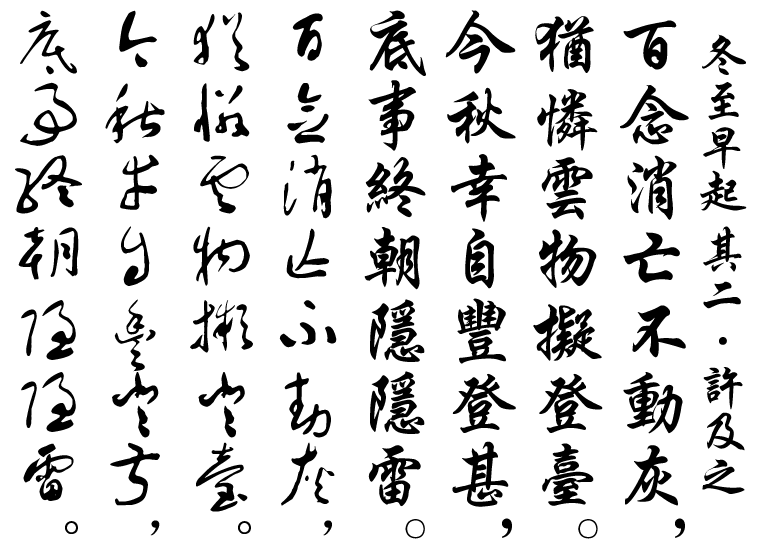 冬至早起 其二．許及之
百念消亡不動灰，
猶憐雲物擬登臺。
今秋幸自豐登甚，
底事終朝隱隱雷。
百念消亡不動灰，
猶憐雲物擬登臺。
今秋幸自豐登甚，
底事終朝隱隱雷。